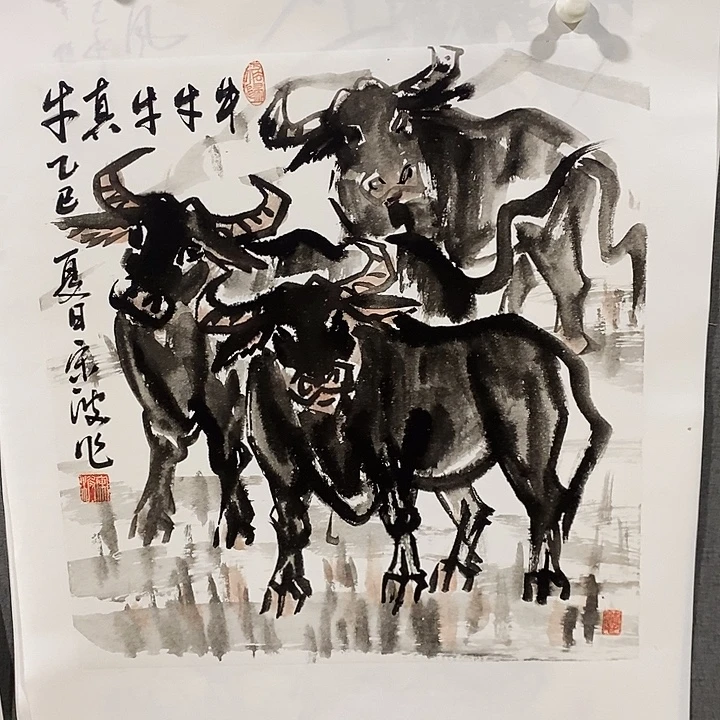 牛牛牛真牛
乙巳夏日宋波作